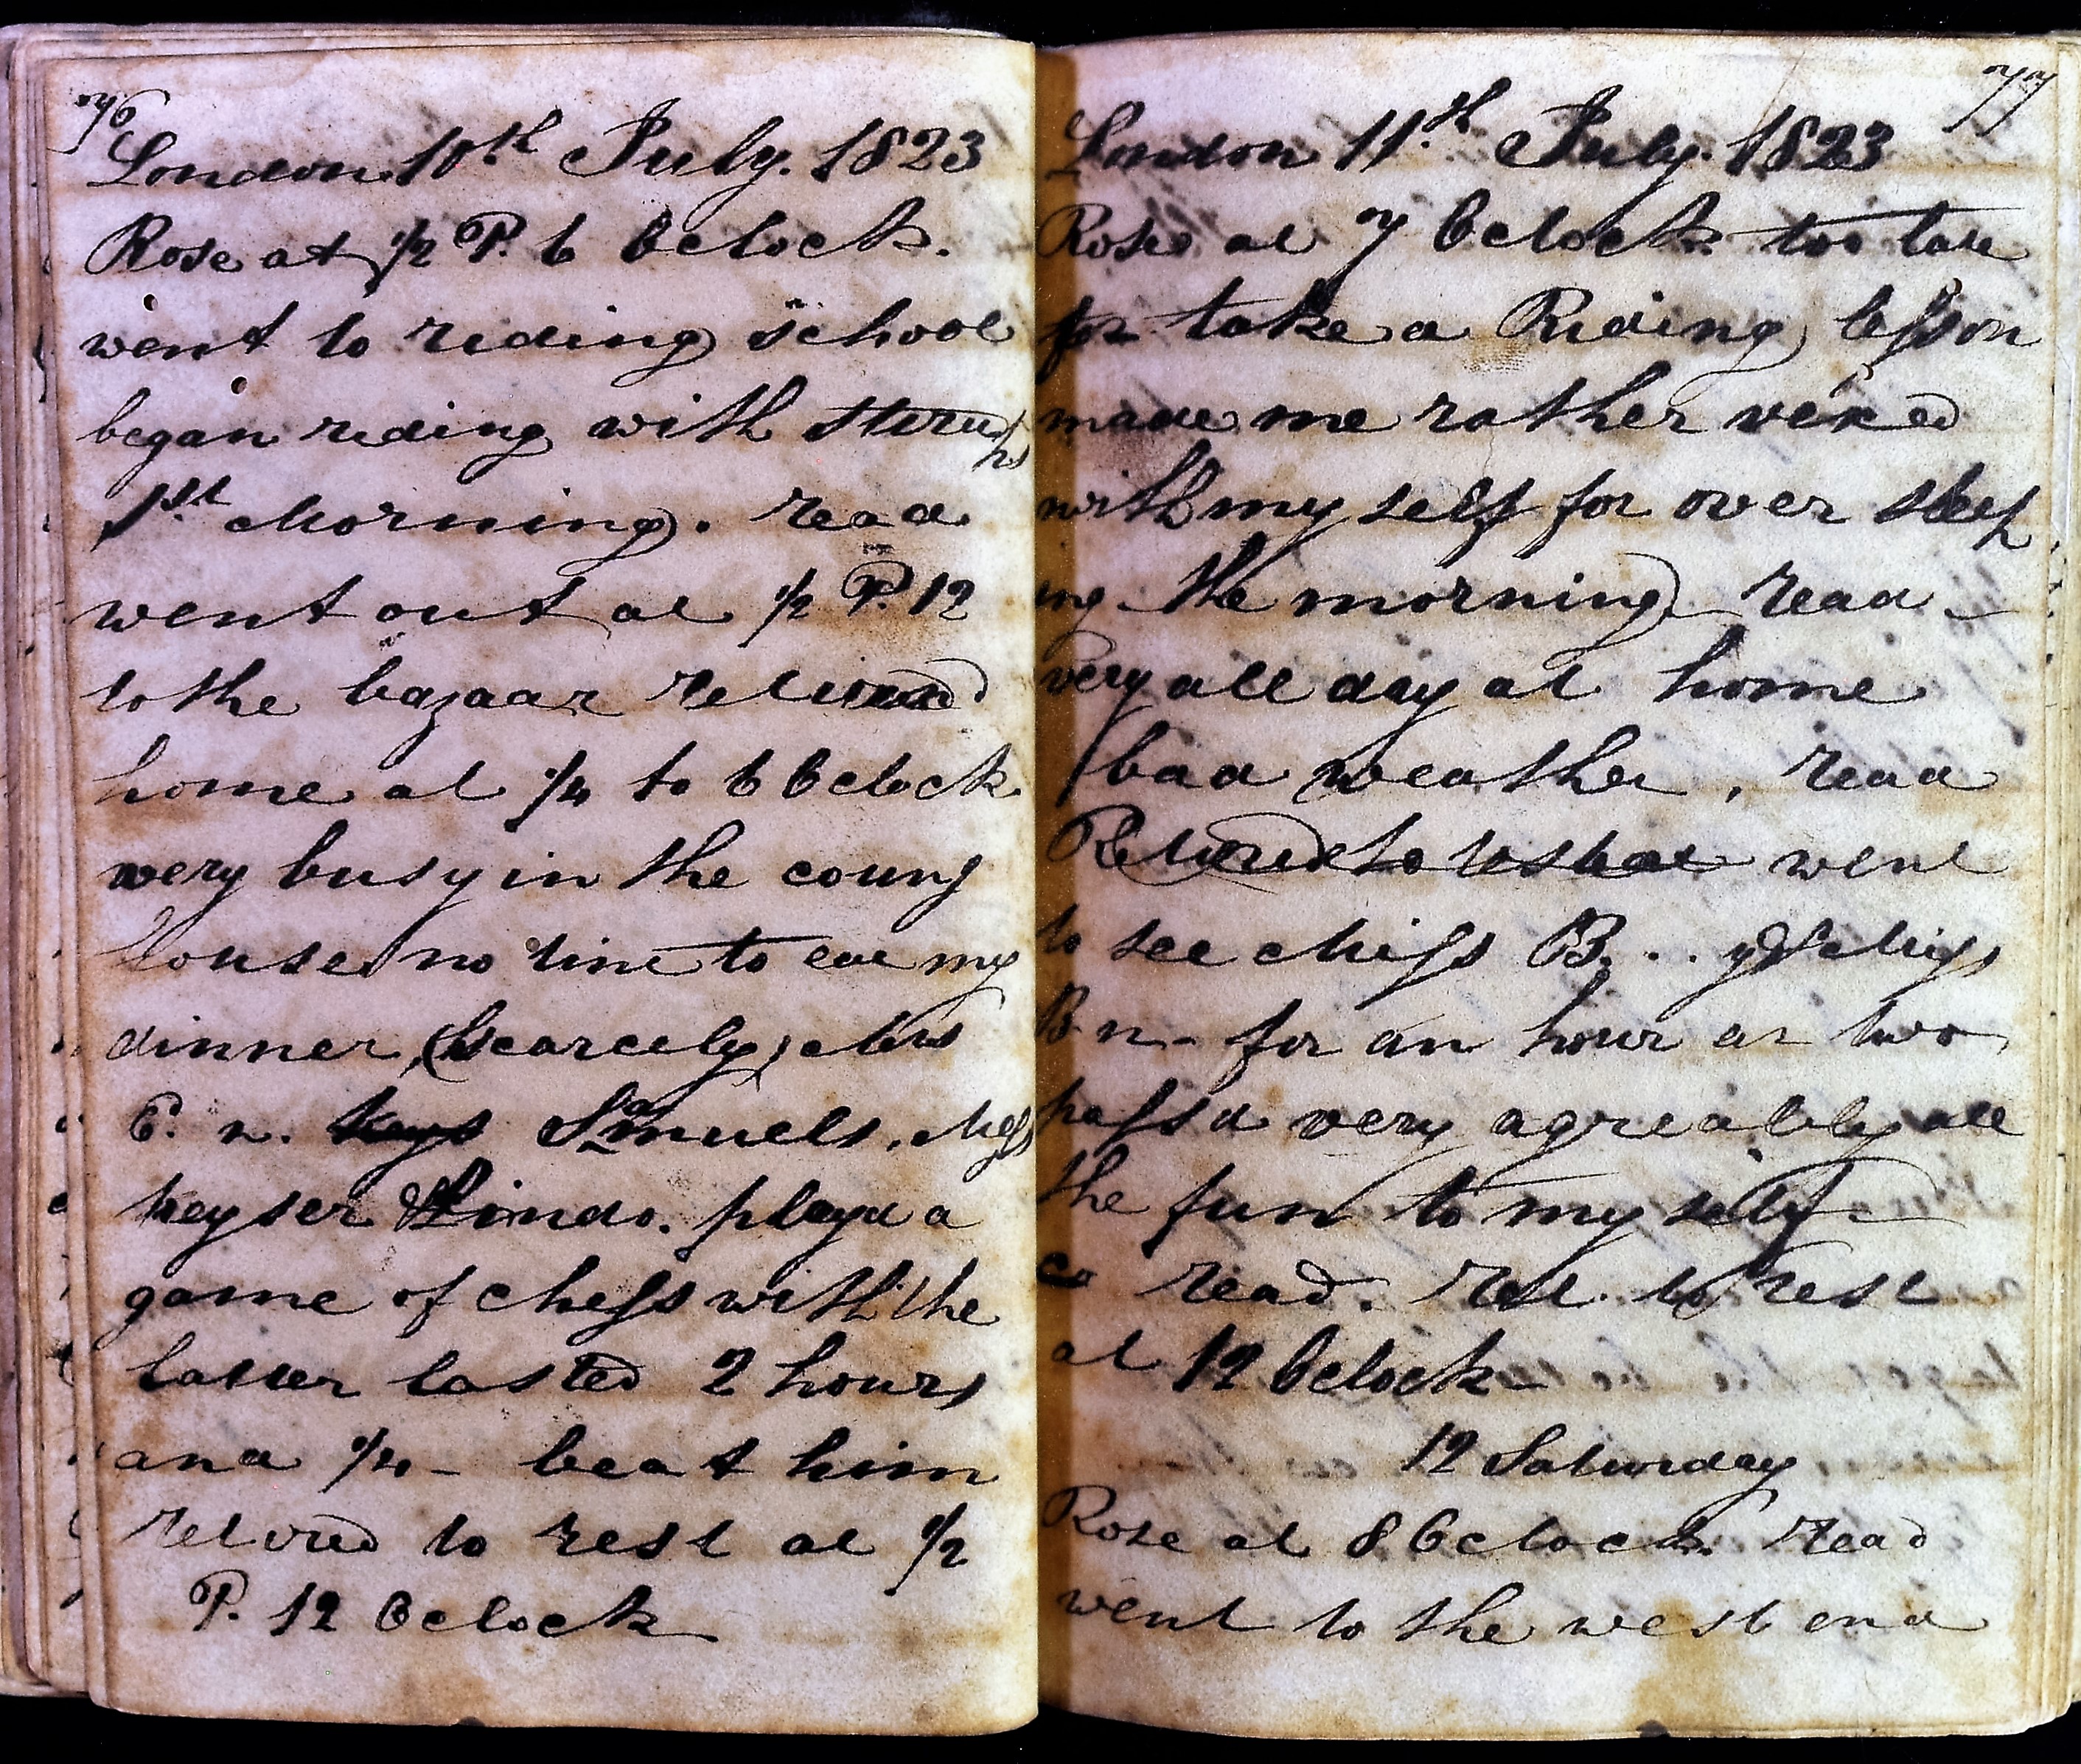 76
London 10th July. 1823
Rose at 1/2 P. 6 Oclock.
went to riding school
began riding with stirrups
1st Morning. read
went out at 1/2 P. 12
to the bazaar retired
home at 1/4 to 6 Oclock
very busy in the coung
house no time to eat my
dinner (scarcely) Mrs
E. n. Keys Samuels. Mess
keyser & Lindo. playd a
game of chess with the
latter lasted 2 hours
and 1/4 - beat him
retired to rest at 1/2
P. 12 Oclock
77
London 11th July. 1823
Rose at 7 Oclock too late
for take a Riding lesson
made me rather vexed
with my self for over sleep
ing the morning read
very all day at home
bad weather, read
Retired to went
to see Miss B. . . Miss
B n- for an hour or two
passd very agreably all
the fun to my self
read. Ret. to rest
at 12 Oclock
12 Saturday
Rose at 8 Oclock Read
went to the west end